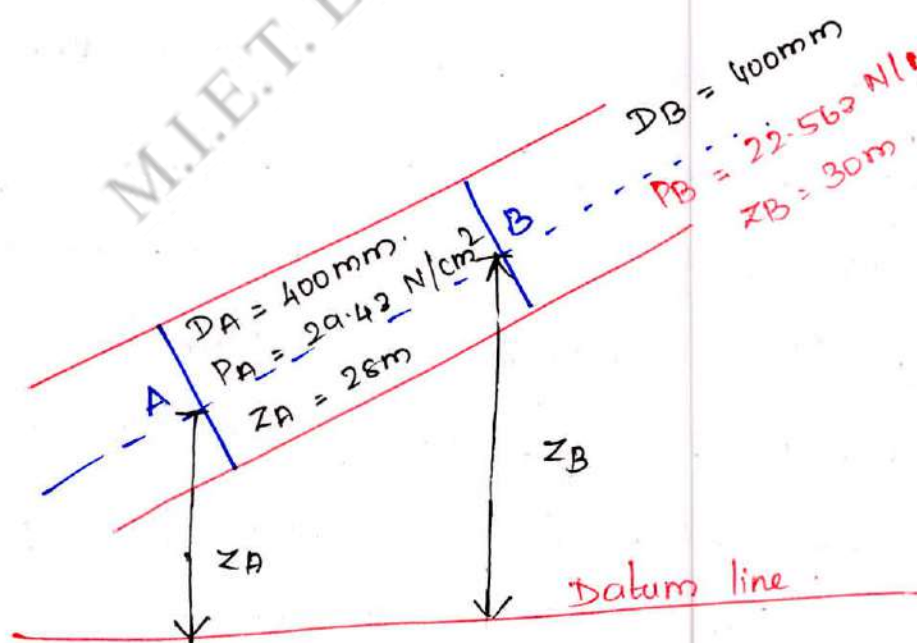 M.I.E.T.
DB = 400mm
PB = 22.563 N/
ZB = 30m.
DA = 400mm.
PA = 29.43 N/cm²
ZA = 28m
A
B
ZA
ZB
Datum line.